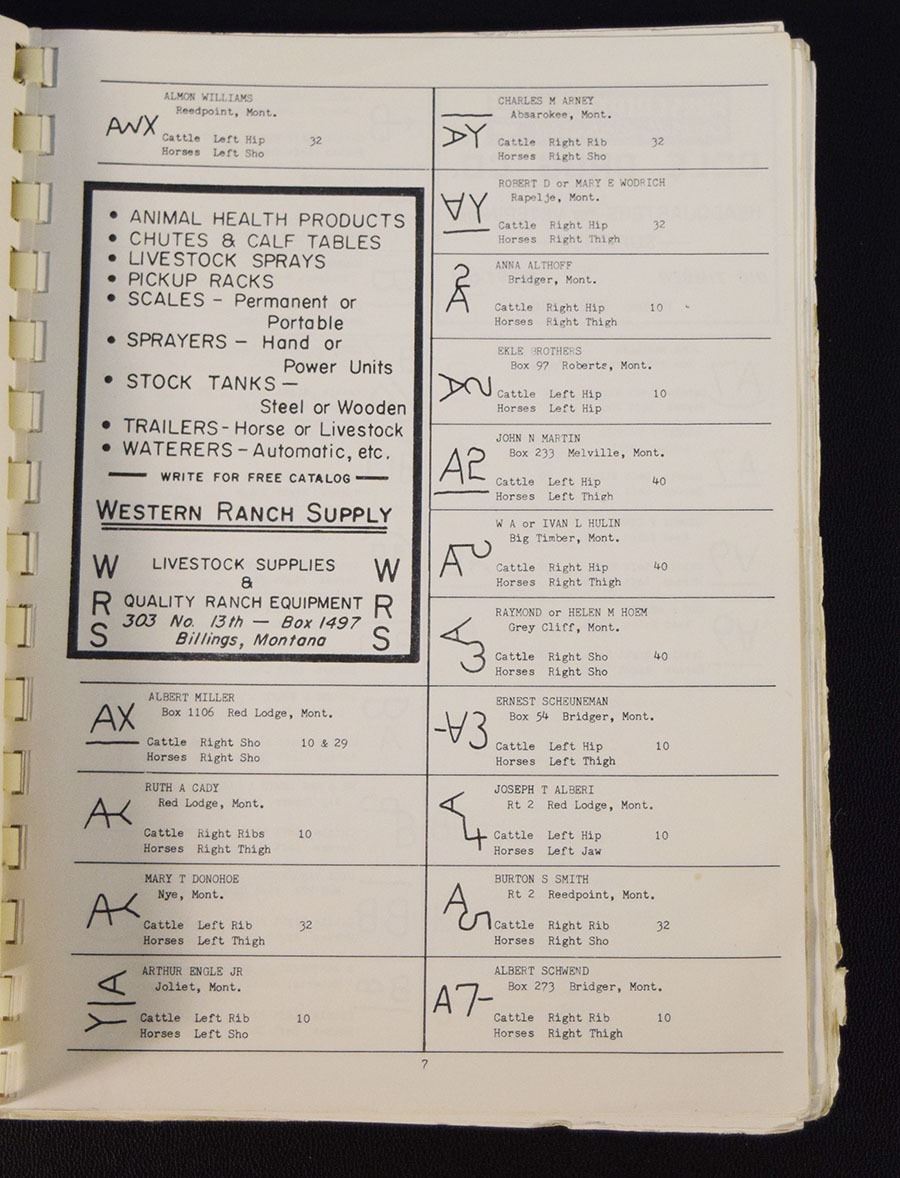 ALMON WILLIAMS
Reedpoint, Mont.
Cattle Left Hip 32
Horses Left Sho
• ANIMAL HEALTH PRODUCTS
• CHUTES & CALF TABLES
• LIVESTOCK SPRAYS
• PICKUP RACKS
• SCALES – Permanent or
Portable
• SPRAYERS – Hand or
Power Units
• STOCK TANKS –
Steel or Wooden
• TRAILERS - Horse or Livestock
• WATERERS – Automatic, etc.
— WRITE FOR FREE CATALOG —
WESTERN RANCH SUPPLY
W LIVESTOCK SUPPLIES W
&
R QUALITY RANCH EQUIPMENT R
303 No. 13th — Box 1497
S Billings, Montana S
AX
ALBERT MILLER
Box 1106 Red Lodge, Mont.
Cattle Right Sho 10 & 29
Horses Right Sho
RUTH A CADY
Red Lodge, Mont.
Cattle Right Ribs 10
Horses Right Thigh
MARY T DONOHOE
Nye, Mont.
Cattle Left Rib 32
Horses Left Thigh
Y|A
ARTHUR ENGLE JR
Joliet, Mont.
Cattle Left Rib 10
Horses Left Sho
AY
CHARLES M ARNEY
Absarokee, Mont.
Cattle Right Rib 32
Horses Right Sho
AY
ROBERT D or MARY E WODRICH
Rapelje, Mont.
Cattle Right Hip 32
Horses Right Thigh
2
A
ANNA ALTHOFF
Bridger, Mont.
Cattle Right Hip 10
Horses Right Thigh
A2
EKLE BROTHERS
Box 97 Roberts, Mont.
Cattle Left Hip 10
Horses Left Hip
A2
JOHN N MARTIN
Box 233 Melville, Mont.
Cattle Left Hip 40
Horses Left Thigh
A2
W A or IVAN L HULIN
Big Timber, Mont.
Cattle Right Hip 40
Horses Right Thigh
A
3
RAYMOND or HELEN M HOEM
Grey Cliff, Mont.
Cattle Right Sho 40
Horses Right Sho
-A3
ERNEST SCHEUNEMAN
Box 54 Bridger, Mont.
Cattle Left Hip 10
Horses Left Thigh
A
4
JOSEPH T ALBERI
Rt 2 Red Lodge, Mont.
Cattle Left Hip 10
Horses Left Jaw
A5
BURTON S SMITH
Rt 2 Reedpoint, Mont.
Cattle Right Rib 32
Horses Right Sho
A7-
ALBERT SCHWEND
Box 273 Bridger, Mont.
Cattle Right Rib 10
Horses Right Thigh
7